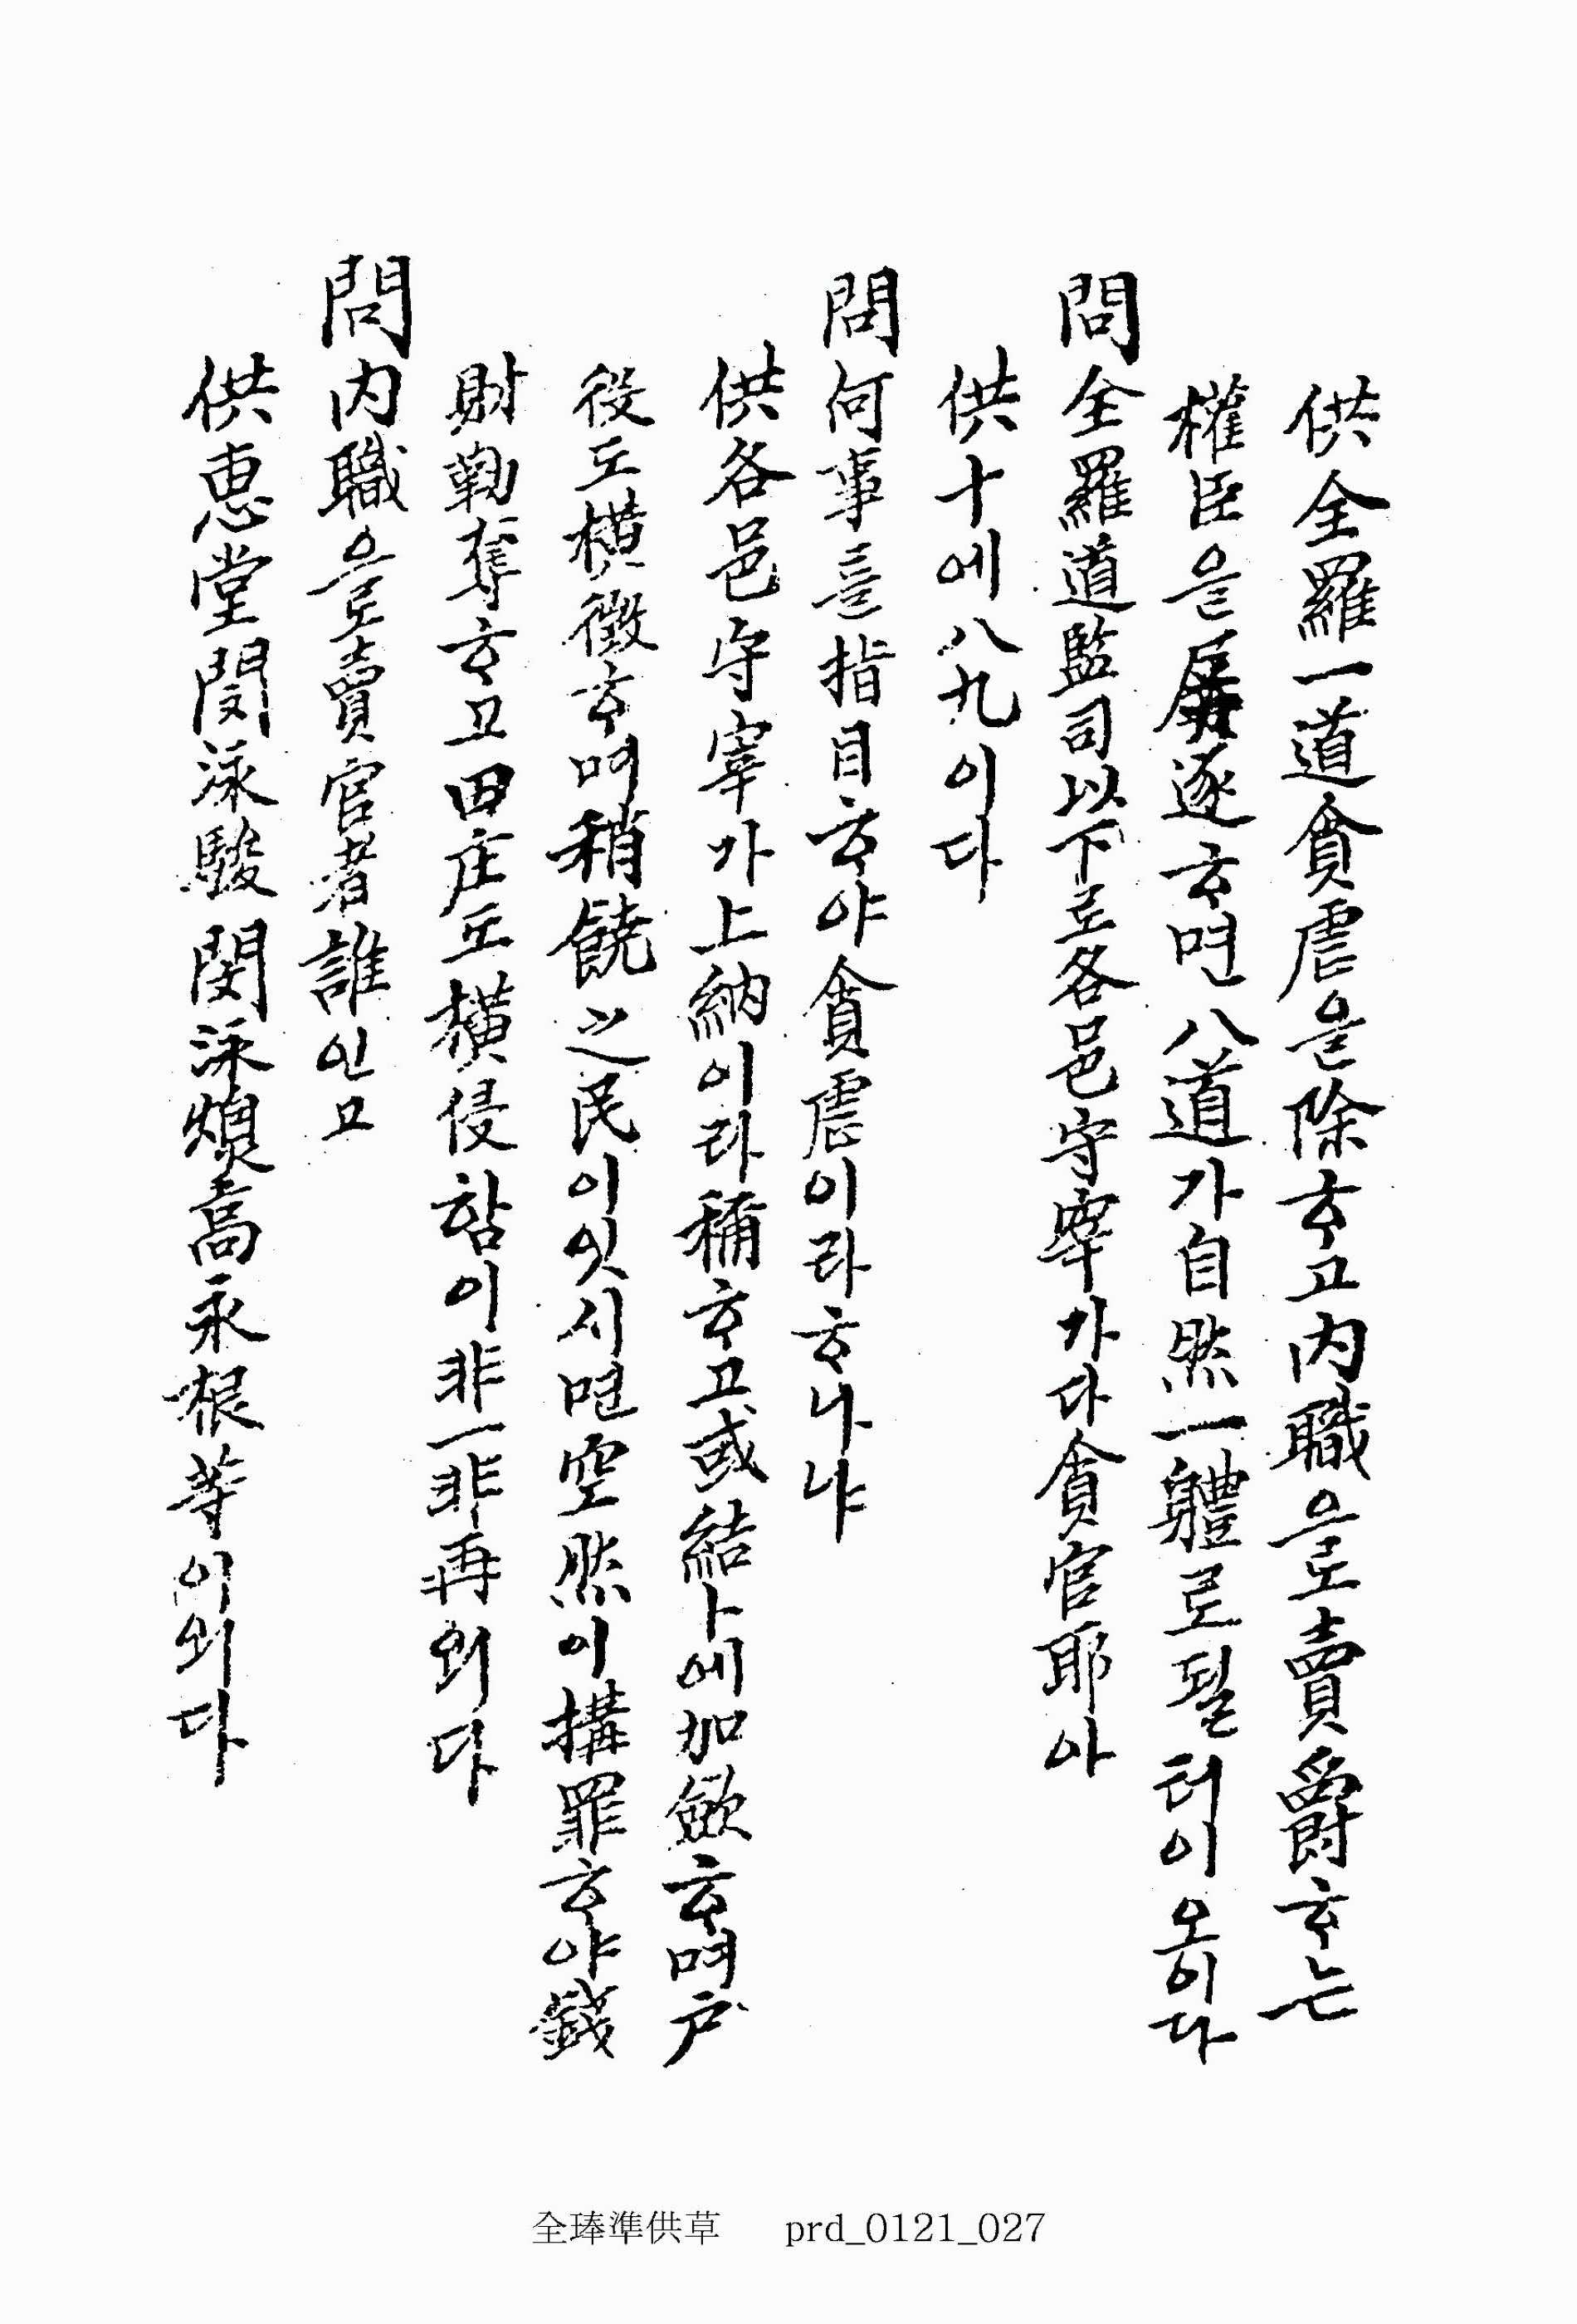 供全羅一道貪虐을除ᄒᆞ고內職으로賣爵ᄒᆞ는
權臣을屛逐ᄒᆞ면八道가自然一軆로될터이옵이다
問全羅道監司以下로各邑守宰가다貪官耶아
供十에八九이다
問何事를指目ᄒᆞ야貪虐이라ᄒᆞ나냐
供各邑守宰가上納이라稱ᄒᆞ고或結卜에加斂ᄒᆞ며戶
役도橫徵ᄒᆞ며稍饒之民이잇시면空然이搆罪ᄒᆞ야錢
財勒奪ᄒᆞ고田庄도橫侵함이非一非再외다
問內職으로賣官者誰인고
供惠堂閔泳駿閔泳煥高永根等이외다
全琫準供草 prd_0121_027